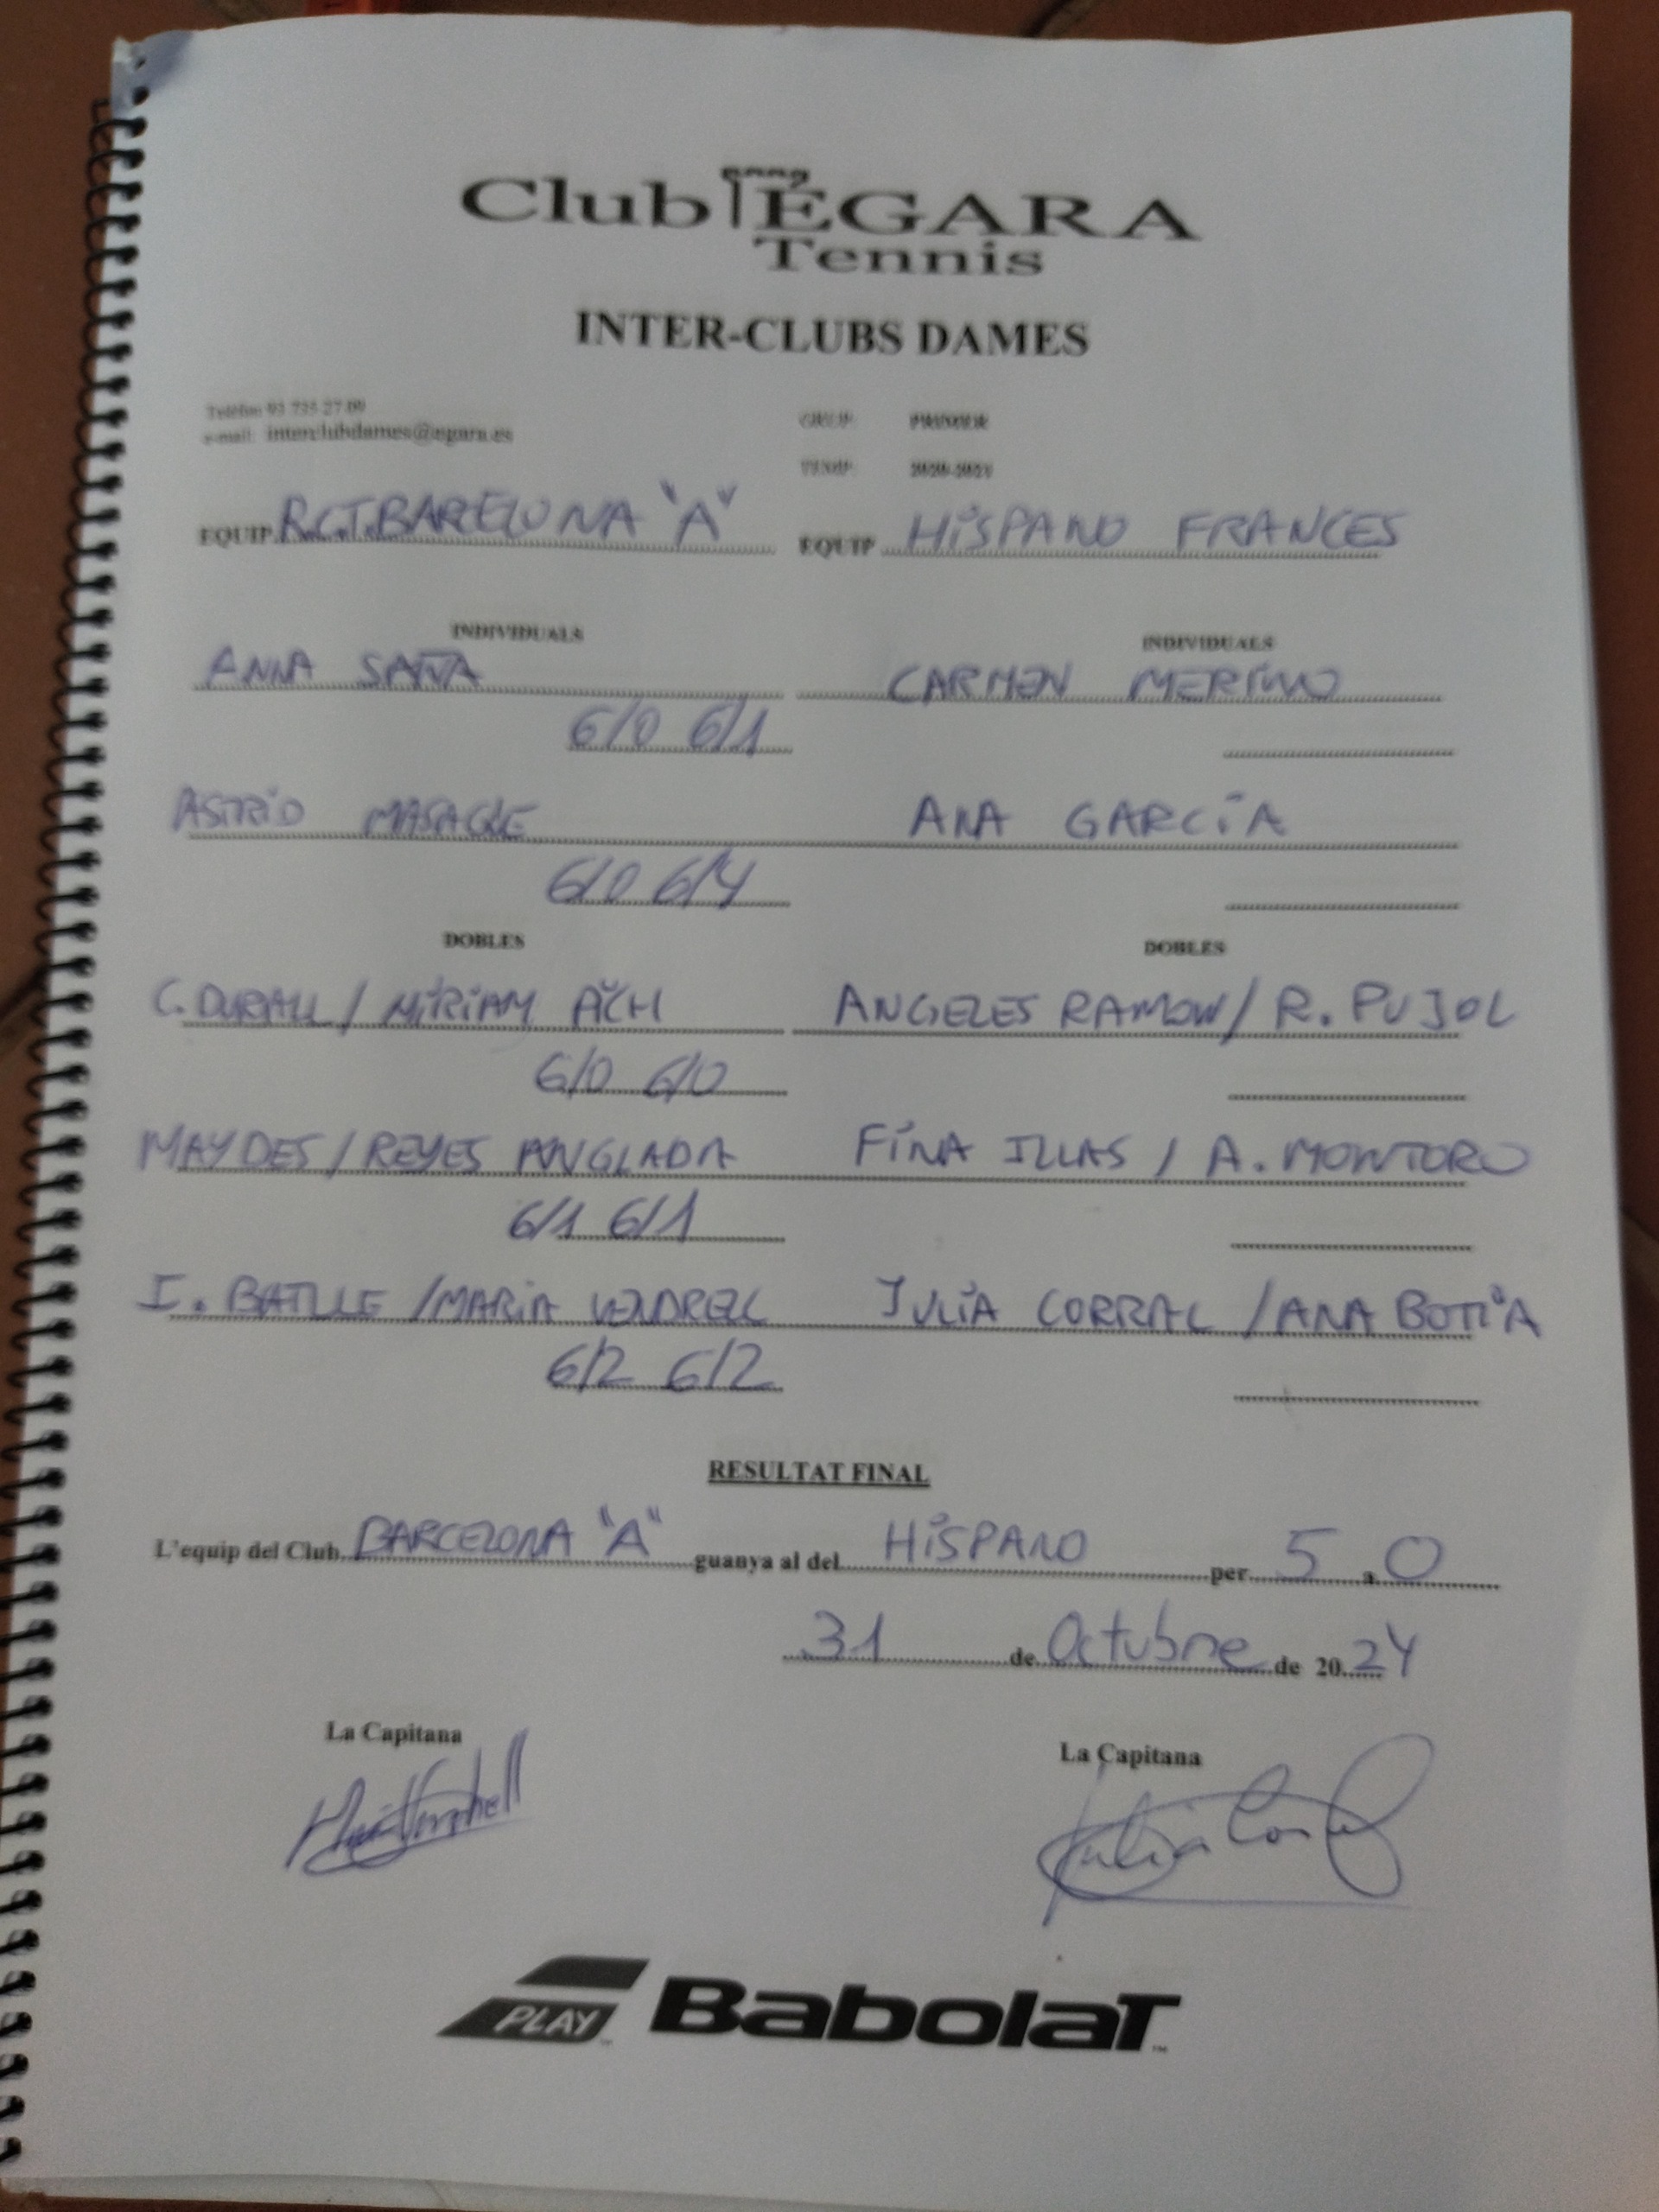 Club ÉGARA
Tennis
INTER-CLUBS DAMES
Telèfon 93 735 27 09
e-mail: interclubdames@egara.es
GRUP: PRIMER
TEMP: 2020-2021
EQUIP R.C.T.BARCELONA "A" EQUIP HISPANO FRANCES
INDIVIDUALS INDIVIDUALS
ANNA SAÑA CARMEN MERINO
6/0 6/1
ASTRID ANA GARCÍA
6/0 6/4
DOBLES DOBLES
C. DURALL / MIRIAM ANGELES RAMON / R. PUJOL
6/0 6/0
MAYDES / REYES ANGLADA FINA ILLAS / A. MONTORO
6/1 6/1
I. BATLLE / MARIA VENDRELL JULIA CORRAL / ANA BOTIA
6/2 6/2
RESULTAT FINAL
L'equip del Club BARCELONA "A" guanya al del HISPANO per 5 a 0
31 de Octubre de 20 24
La Capitana La Capitana
Julia Corral
PLAY Babolat ™